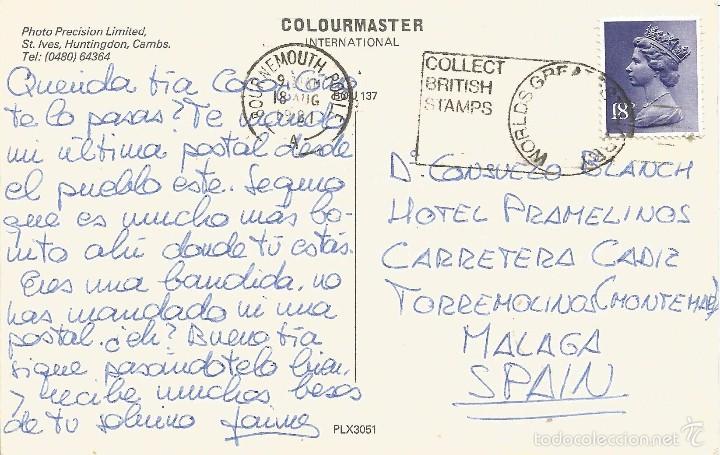 Photo Precision Limited,
St. Ives, Huntingdon, Cambs.
Tel: (0480) 64364
COLOURMASTER
INTERNATIONAL
BOU 137
BOURNEMOUTH POOLE
18 AUG
1981
A
COLLECT
BRITISH
STAMPS
WORLDS GREATEST HOBBY
18P
Querida tía Coco ¿Cómo
te lo pasas? Te mando
mi última postal desde
el pueblo este. Seguro
que es mucho más bo-
nito ahí donde tú estás.
Eres una bandida, no
has mandado ni una
postal. ¿eh? Bueno tía
sigue pasándotelo bien,
y recibe muchos besos
de tu sobrino Jaime
Dª CONSUELO BLANCH
HOTEL PRAMELINOS
CARRETERA CADIZ
TORREMOLINOS (MONTEMAR)
MALAGA
SPAIN
PLX3051
todocoleccion.net